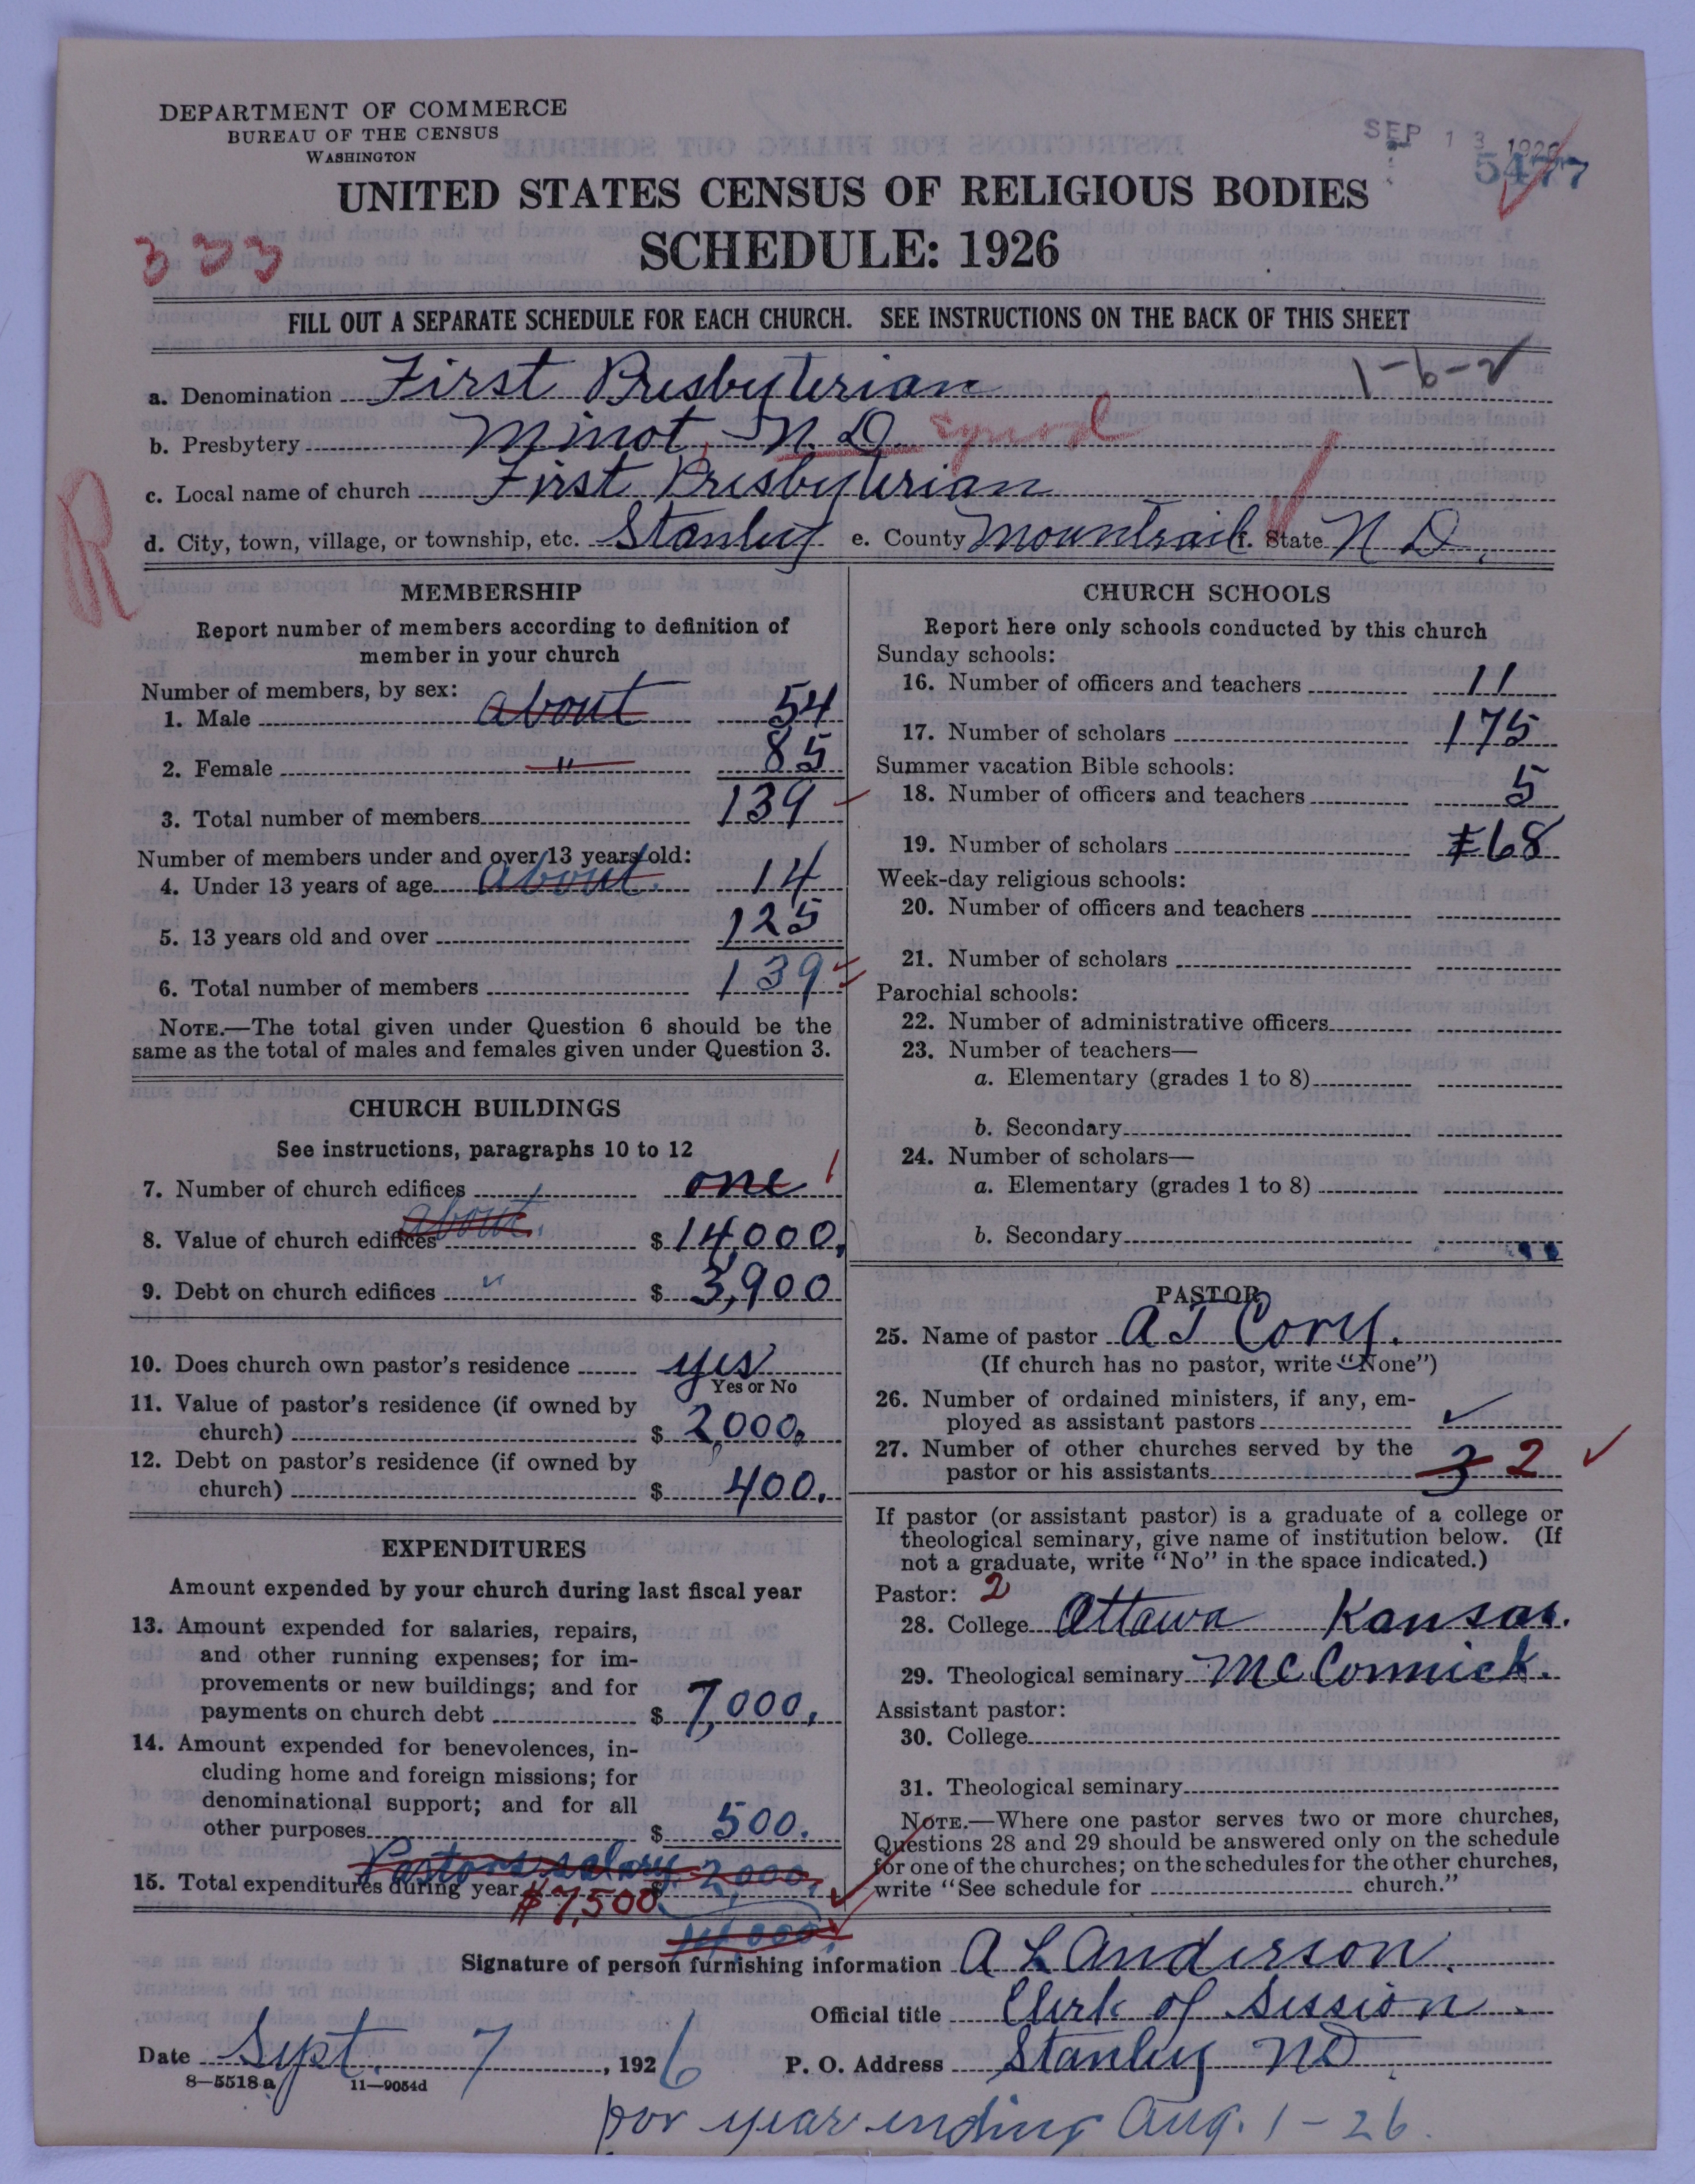 DEPARTMENT OF COMMERCE
BUREAU OF THE CENSUS
WASHINGTON
SEP 13 1926
5477
UNITED STATES CENSUS OF RELIGIOUS BODIES
SCHEDULE: 1926
333
FILL OUT A SEPARATE SCHEDULE FOR EACH CHURCH. SEE INSTRUCTIONS ON THE BACK OF THIS SHEET
1-6-2
a. Denomination First Presbyterian
b. Presbytery Minot, N. D. Synod
c. Local name of church First Presbyterian
R
d. City, town, village, or township, etc. Stanley e. County Mountrail f. State N D.
MEMBERSHIP
Report number of members according to definition of
member in your church
Number of members, by sex:
1. Male about 54
2. Female " 85
3. Total number of members 139
Number of members under and over 13 years old:
4. Under 13 years of age about. 14
5. 13 years old and over 125
6. Total number of members 139
NOTE.—The total given under Question 6 should be the
same as the total of males and females given under Question 3.
CHURCH BUILDINGS
See instructions, paragraphs 10 to 12
7. Number of church edifices one 1
8. Value of church edifices about. $ 14,000.
9. Debt on church edifices " $ 3,900
10. Does church own pastor's residence yes
Yes or No
11. Value of pastor's residence (if owned by
church) $ 2,000.
12. Debt on pastor's residence (if owned by
church) $ 400.
EXPENDITURES
Amount expended by your church during last fiscal year
13. Amount expended for salaries, repairs,
and other running expenses; for im-
provements or new buildings; and for
payments on church debt $ 7,000.
14. Amount expended for benevolences, in-
cluding home and foreign missions; for
denominational support; and for all
other purposes $ 500.
Pastors salary 2,000.
15. Total expenditures during year $ $7,500
14,000.
CHURCH SCHOOLS
Report here only schools conducted by this church
Sunday schools:
16. Number of officers and teachers 11
17. Number of scholars 175
Summer vacation Bible schools:
18. Number of officers and teachers 5
19. Number of scholars 68
Week-day religious schools:
20. Number of officers and teachers
21. Number of scholars
Parochial schools:
22. Number of administrative officers
23. Number of teachers—
a. Elementary (grades 1 to 8)
b. Secondary
24. Number of scholars—
a. Elementary (grades 1 to 8)
b. Secondary
PASTOR
25. Name of pastor A J Cory.
(If church has no pastor, write "None")
26. Number of ordained ministers, if any, em-
ployed as assistant pastors ✓
27. Number of other churches served by the
pastor or his assistants 3 2 ✓
If pastor (or assistant pastor) is a graduate of a college or
theological seminary, give name of institution below. (If
not a graduate, write "No" in the space indicated.)
Pastor: 2
28. College Ottawa Kansas.
29. Theological seminary McCormick.
Assistant pastor:
30. College
31. Theological seminary
NOTE.—Where one pastor serves two or more churches,
Questions 28 and 29 should be answered only on the schedule
for one of the churches; on the schedules for the other churches,
write "See schedule for church."
Signature of person furnishing information A L Anderson.
Official title Clerk of Session.
Date Sept. 7, 1926 P. O. Address Stanley ND
8—5518 a 11—9054d
for year ending Aug. 1 - 26.